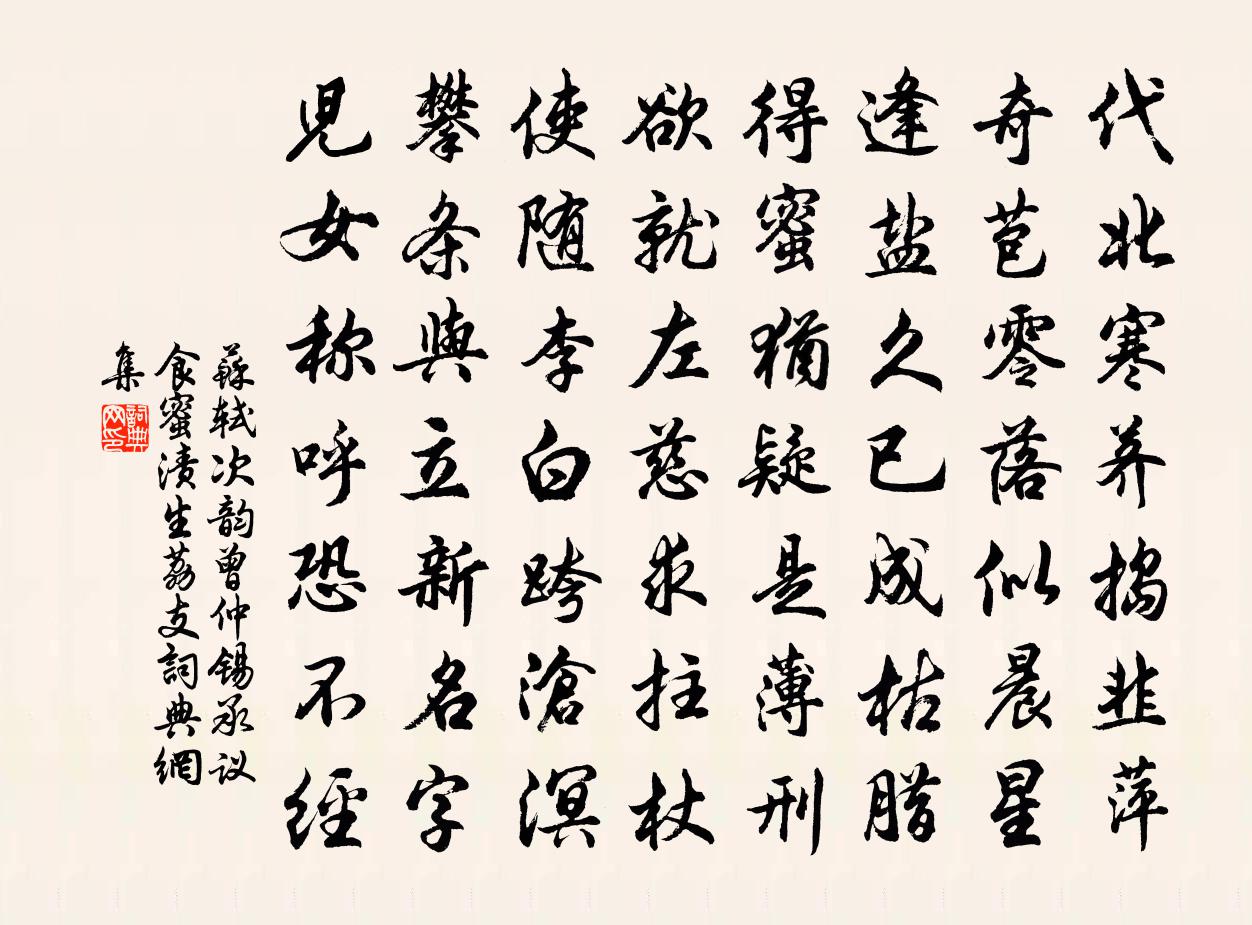 代北寒荠捣韭萍
奇苞零落似晨星
逢盐久已成枯腊
得蜜犹疑是薄刑
欲就左慈求拄杖
使随李白跨滄溟
攀条與立新名字
兒女称呼恐不经
蘇轼次韵曾仲锡承议
食蜜渍生荔支詞典網
集
詞典网印